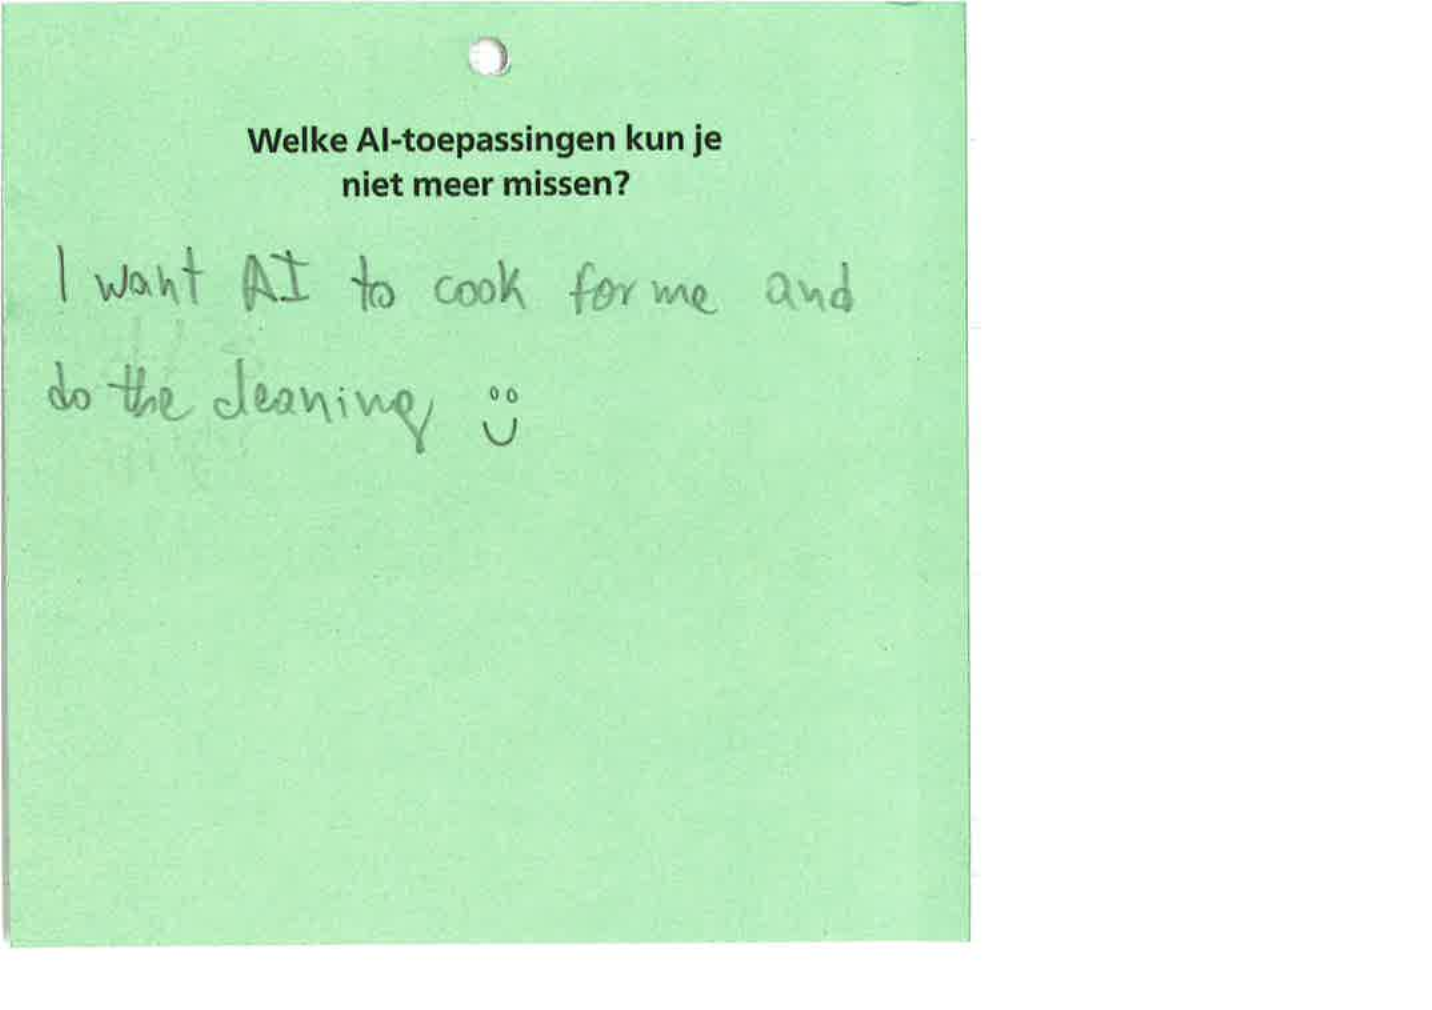 Welke AI-toepassingen kun je
niet meer missen?
I want AI to cook for me and
do the cleaning